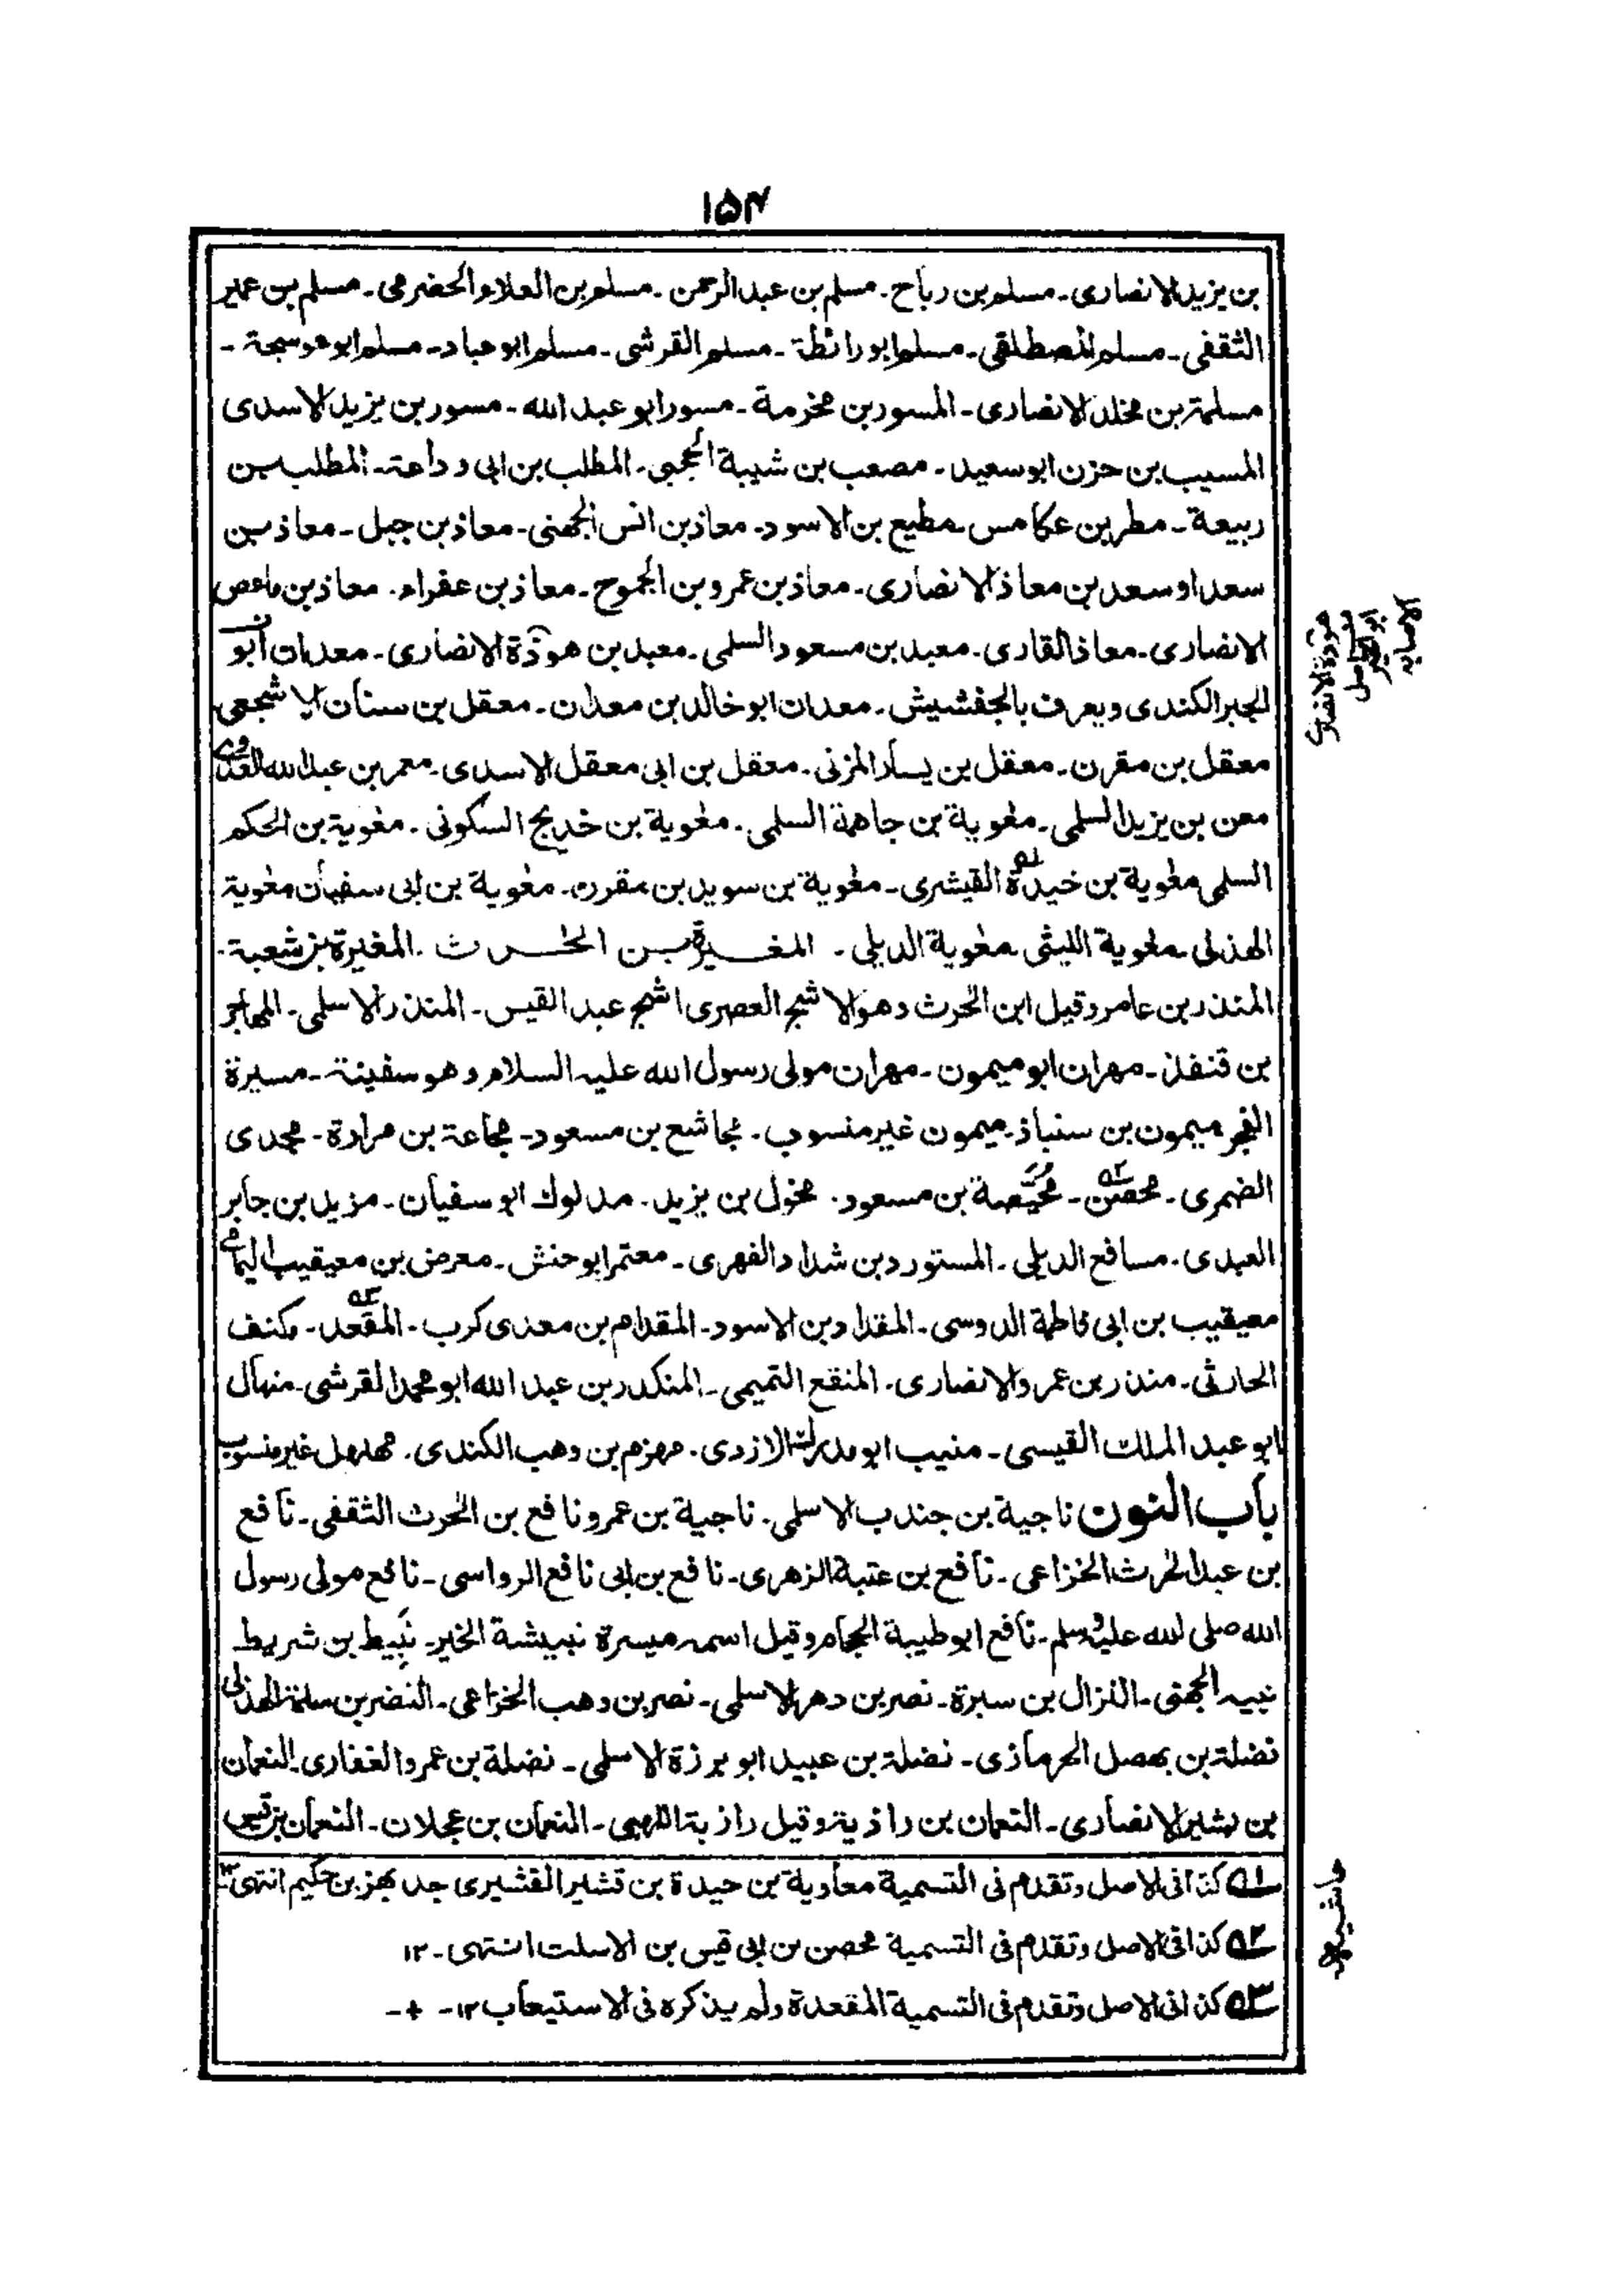 ١٥٤
بن يزيد الانصارى۔ مسلم بن رباح۔ مسلم بن عبد الرحمن۔ مسلم بن العلاء الحضرمى۔ مسلم بن عمير
الثقفى۔ مسلم المصطلقى۔ مسلم ابو رائطة۔ مسلم القرشى۔ مسلم ابو عباد۔ مسلم ابو عوسجة۔
مسلمة بن مخلد الانصارى۔ المسور بن مخرمة۔ مسور ابو عبد الله۔ مسور بن يزيد الاسدى
المسيب بن حزن ابو سعيد۔ مصعب بن شيبة الحجبى۔ المطلب بن ابى وداعة۔ المطلب بن
ربيعة۔ مطر بن عكامس۔ مطيع بن الاسود۔ معاذ بن انس الجهنى۔ معاذ بن جبل۔ معاذ بن
سعد او سعد بن معاذ الانصارى۔ معاذ بن عمرو بن الجموح۔ معاذ بن عفراء۔ معاذ بن ماعص
الانصارى۔ معاذ القارى۔ معبد بن مسعود السلمى۔ معبد بن هوذة الانصارى۔ معدان ابو
الجبر الكندى ويعرف بالجفشيش۔ معدان ابو خالد بن معدان۔ معقل بن سنان الاشجعى
معقل بن مقرن۔ معقل بن يسار المزنى۔ معقل بن ابى معقل الاسدى۔ معمر بن عبد الله العدوى
معن بن يزيد السلمى۔ معٰوية بن جاهمة السلمى۔ معٰوية بن خديج السكونى۔ معٰوية بن الحكم
السلمى معٰوية بن خيدة القيشرى۔ معٰوية بن سويد بن مقرن۔ معٰوية بن ابى سفيان معٰوية
الهذلى۔ معٰوية الليثى۔ معٰوية الديلى۔ المغيرة بن الحٰرث۔ المغيرة بن شعبة۔
المنذر بن عامر وقيل ابن الحٰرث وهو الاشج العصرى اشج عبد القيس۔ المنذر الاسلمى۔ المهاجر
بن قنفذ۔ مهران ابو ميمون۔ مهران مولى رسول الله عليه السلام وهو سفينة۔ مسيرة
الفجر ميمون بن سنباذ۔ ميمون غير منسوب۔ مجاشع بن مسعود۔ مجاعة بن مرارة۔ مجدى
الضمرى۔ محصن۔ محيّصة بن مسعود۔ مخول بن يزيد۔ مدلوك ابو سفيان۔ مزيد بن جابر
العبدى۔ مسافع الديلى۔ المستورد بن شداد الفهرى۔ معتمر ابو حنش۔ معرض بن معيقيب اليمامى
معيقيب بن ابى فاطمة الدوسى۔ المقداد بن الاسود۔ المقدام بن معدى كرب۔ المقعد۔ مكنف
الحارثى۔ منذر بن عمرو الانصارى۔ المنقع التميمى۔ المنكدر بن عبد الله ابو محمد القرشى۔ منهال
ابو عبد الملك القيسى۔ منيب ابو مدرك الازدى۔ مهزم بن وهب الكندى۔ مهلهل غير منسوب
باب النون ناجية بن جندب الاسلمى۔ ناجية بن عمرو نافع بن الحٰرث الثقفى۔ نافع
بن عبد الحٰرث الخزاعى۔ نافع بن عتبة الزهرى۔ نافع بن ابى نافع الرواسى۔ نافع مولى رسول
الله صلى الله عليه وسلم۔ نافع ابو طيبة الحجام وقيل اسمه ميسرة نبيشة الخير۔ نبيط بن شريط
نبيه الجهنى۔ النزال بن سبرة۔ نصر بن دهر الاسلمى۔ نصر بن وهب الخزاعى۔ النضر بن سلمة الهذلى
نضلة بن بهصل الحرمازى۔ نضلة بن عبيد ابو برزة الاسلمى۔ نضلة بن عمرو الغفارى۔ النعمان
بن بشير الانصارى۔ النعمان بن راذية وقيل رازبة اللهبى۔ النعمان بن عجلان۔ النعمان بن قيس
ــه١ كذا فى الاصل وتقدم فى التسمية معاوية بن حيدة بن قشير القشيرى جد بهز بن حكيم انتهى ١٢
ــه٢ كذا فى الاصل وتقدم فى التسمية محصن بن ابى قيس بن الاسلت انتهى۔ ١٢
ــه٣ كذا فى الاصل وتقدم فى التسمية المقعدة ولم يذكره فى الاستيعاب ١٢۔ +۔
هوذة الانصارى
حاشيه